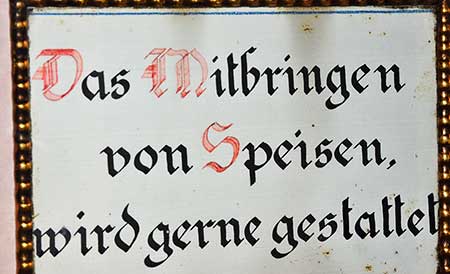 Das Mitbringen
von Speisen,
wird gerne gestattet